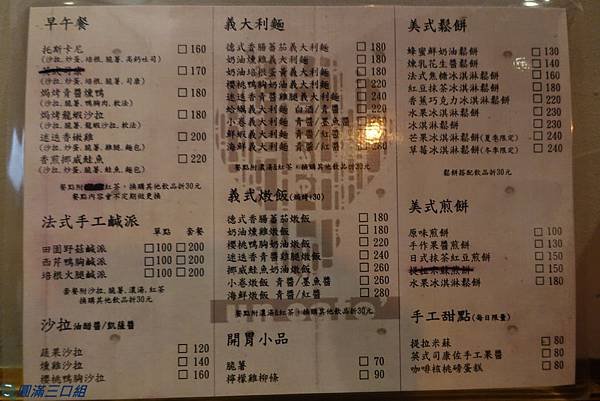 早午餐
托斯卡尼 □160
(沙拉, 炒蛋, 培根, 脆薯, 高鈣吐司)
□170
(沙拉, 炒蛋, 培根, 脆薯, 司康)
焗烤青醬燻鴨 □180
(沙拉, 脆薯, 鴨胸肉, 軟法)
焗烤龍蝦沙拉 □180
(沙拉, 脆薯, 龍蝦沙拉, 軟法)
迷迭香嫩雞 □200
(沙拉, 炒蛋, 脆薯, 雞腿, 麵包)
香煎挪威鮭魚 □220
(沙拉, 炒蛋, 脆薯, 鮭魚, 麵包)
餐點附紅茶，換購其他飲品折30元
餐點內容會不定期做更換
法式手工鹹派 單點 套餐
田園野菇鹹派 □100 □200
西芹鴨胸鹹派 □100 □200
培根火腿鹹派 □100 □200
套餐附沙拉, 脆薯, 濃湯, 紅茶
換購其他飲品折30元
沙拉 油醋醬/凱薩醬
蔬果沙拉 □120
燻雞沙拉 □140
櫻桃鴨胸沙拉 □160
義大利麵
德式香腸蕃茄義大利麵 □180
奶油燻雞義大利麵 □180
奶油培根蛋黃義大利麵 □180
櫻桃鴨胸奶油義大利麵 □220
迷迭香青醬雞腿義大利麵 □240
蛤蠣義大利麵 白酒/青醬 □220
小卷義大利麵 青醬/墨魚醬 □240
鮮蝦義大利麵 青醬/紅醬 □240
海鮮義大利麵 青醬/紅醬 □280
餐點附濃湯&紅茶，換購其他飲品折30元
義式燉飯 (焗烤+30)
德式香腸蕃茄燉飯 □180
奶油燻雞燉飯 □180
櫻桃鴨胸奶油燉飯 □220
迷迭香青醬雞腿燉飯 □240
挪威鮭魚奶油燉飯 □260
小卷燉飯 青醬/墨魚醬 □260
鮮蝦燉飯 青醬/紅醬 □260
海鮮燉飯 青醬/紅醬 □280
餐點附濃湯&紅茶，換購其他飲品折30元
開胃小品
脆薯 □70
檸檬雞柳條 □90
美式鬆餅
蜂蜜鮮奶油鬆餅 □130
煉乳花生醬鬆餅 □140
法式焦糖冰淇淋鬆餅 □160
紅豆抹茶冰淇淋鬆餅 □160
香蕉巧克力冰淇淋鬆餅 □160
水果冰淇淋鬆餅 □180
冰淇淋鬆餅 □180
芒果冰淇淋鬆餅(夏季限定) □240
草莓冰淇淋鬆餅(冬季限定) □240
鬆餅搭配飲品折30元
美式煎餅
原味煎餅 □100
手作果醬煎餅 □110
日式抹茶紅豆煎餅 □150
提拉米蘇煎餅 □150
水果冰淇淋煎餅 □180
手工甜點(每日限量)
提拉米蘇 □80
英式司康佐手工果醬 □80
咖啡核桃磅蛋糕 □80
圓滿三口組